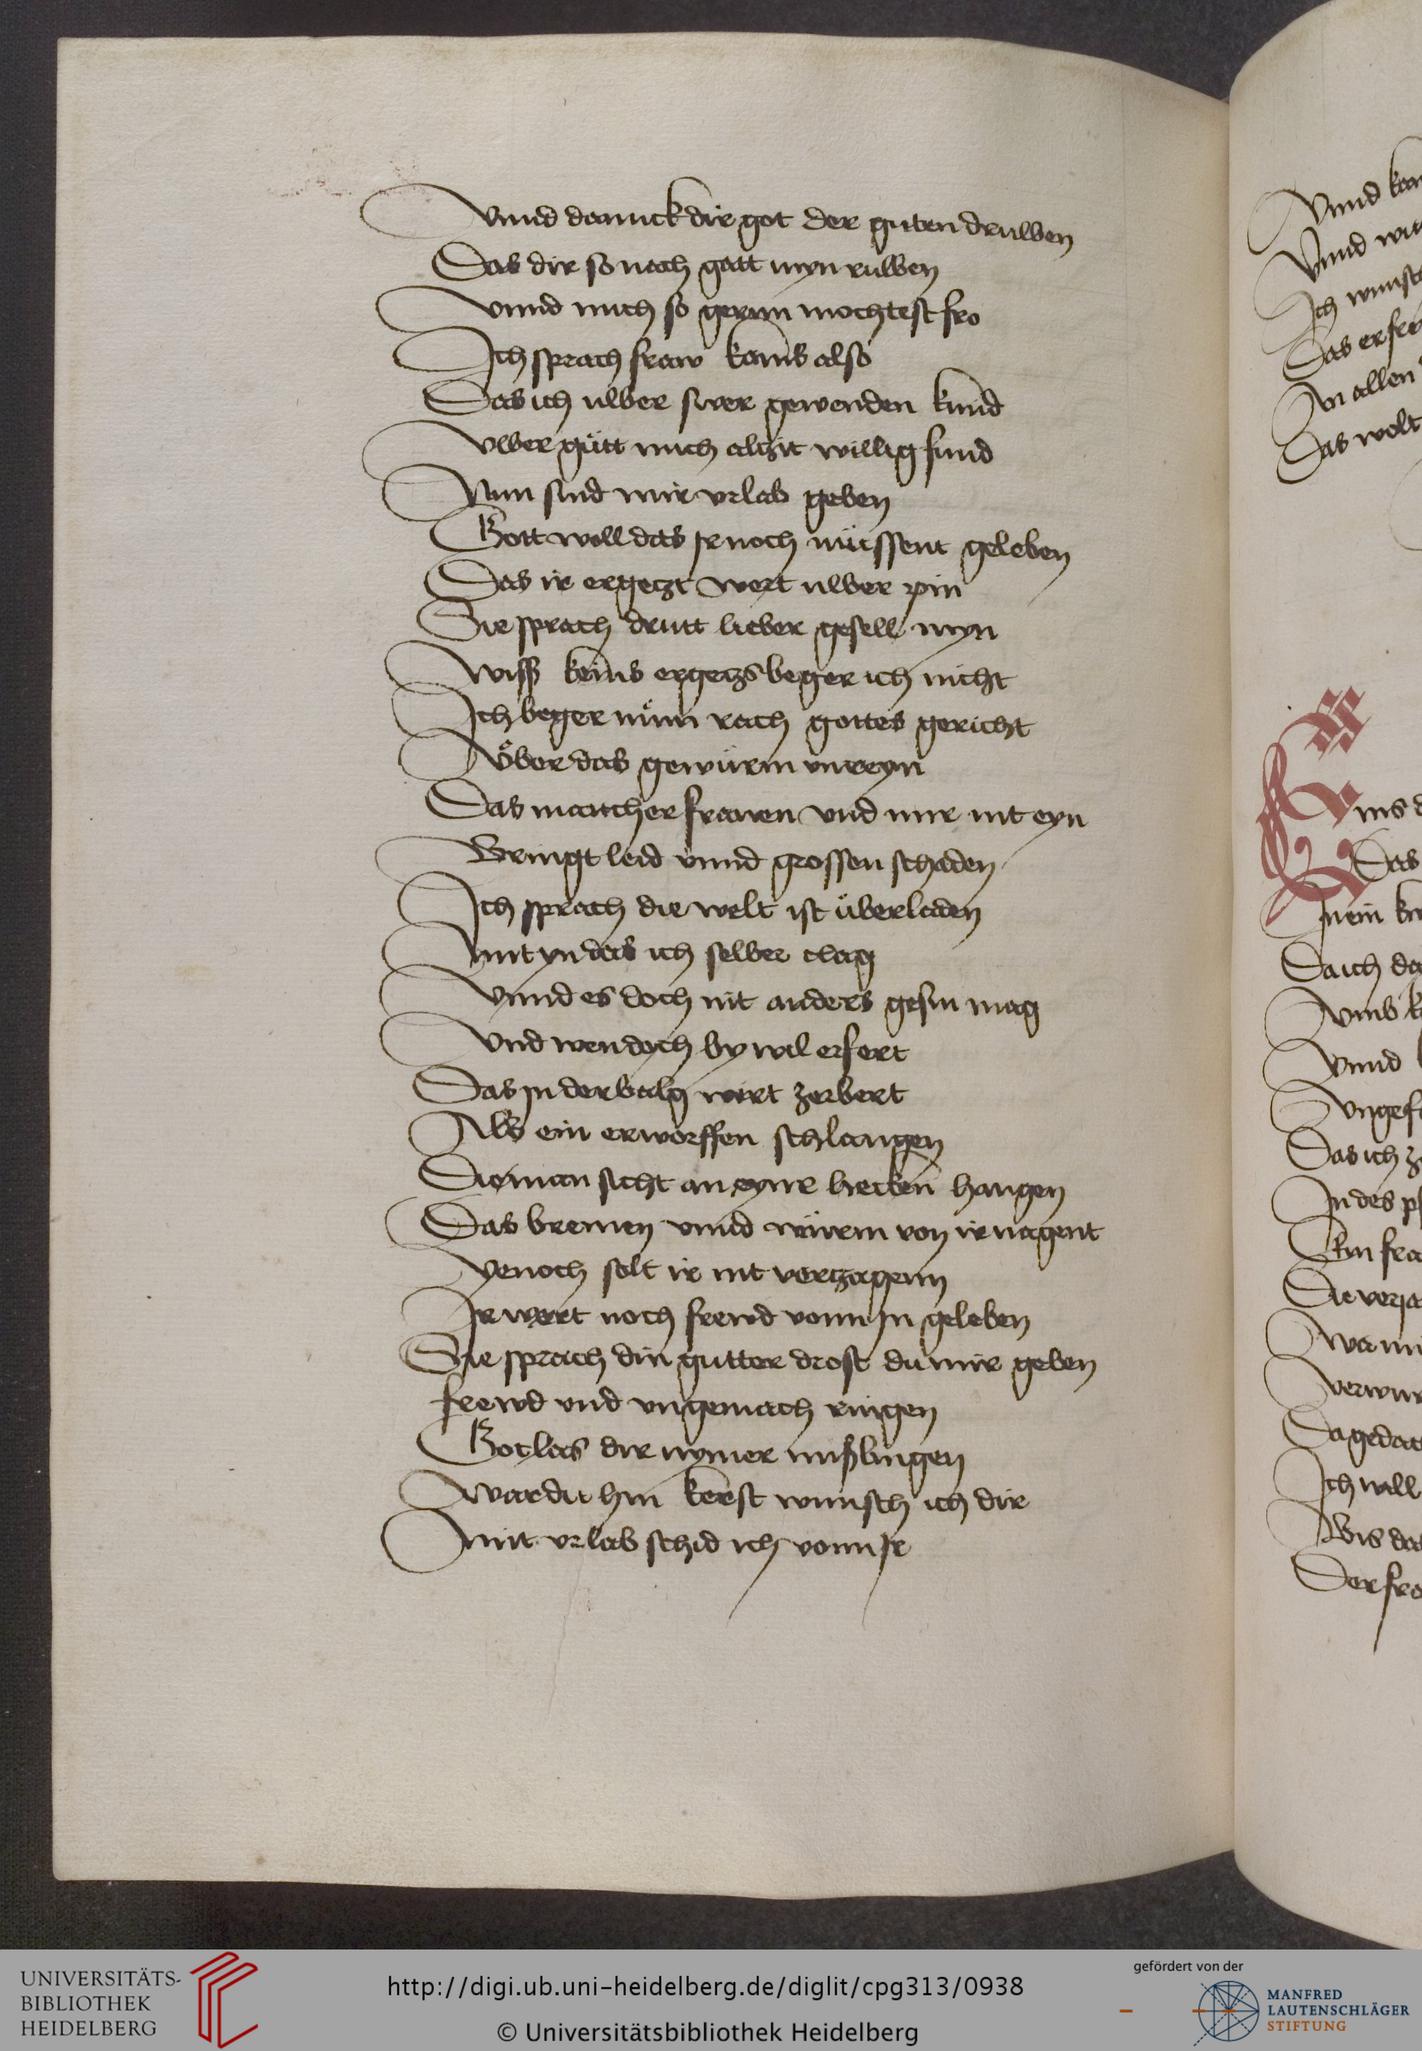 Vnnd dannck dir got der guten druwen
Das dir so nach gatt myn ruwen
Vnnd mich so gernn mochtest fro
Ich sprach fraw kanns also
Das ich uwer swer gewenden kund
Vwer gütt mich alczit willig fund
Nun sind mir vrlab geben
Gott woll das Ir noch müssent geleben
Das ir ergeczt wert uwer pin
Sie sprach drutt lieber gesell myn
Wiss keins ergeczs beger ich nicht
Ich beger nün rach gottes gericht
Vͦber das gewürm vnreyn
Das mancher frauen vnd mir nit eyn
Bringt leid vnnd grossen schaden
Ich sprach die welt ist überladen
Mit yn das ich selber clag
Vnnd es doch nit anders gesin mag
Vnd wen doch by wil erfert
Das In der balg wirt zerbert
Als ein erworffen schlangen
Die man sicht an eyne hecken hangen
Das bremen vnnd würm von ir nagent
Yenoch solt ir nit verczagenn
Ir wert noch frewd vonn In geleben
Sie sprach din gutter drost du mir geben
frewd vnd vngemach ringen
Got las dir nymer mißlingen
War du hin kerst wünsch ich dir
Mit vrlab schid ich vonn Ir
Vnnd
Vnnd
Ich
Das
An allen
Das wolt
Das
In ein
Da ich
Vmb
Vnnd
Das ich
In des
Ein
Die
Ich will
Bis
Der
UNIVERSITÄTS-
BIBLIOTHEK
HEIDELBERG
http://digi.ub.uni-heidelberg.de/diglit/cpg313/0938
© Universitätsbibliothek Heidelberg
gefördert von der
MANFRED
LAUTENSCHLÄGER
STIFTUNG